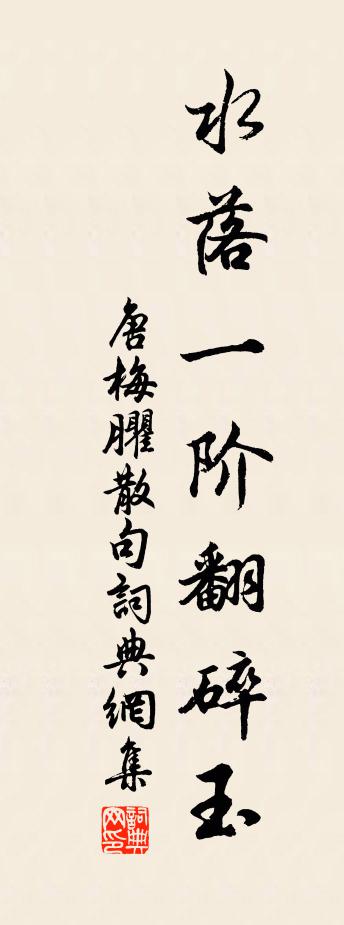 水落一阶翻碎玉
唐梅臞散句詞典網集
詞典网印